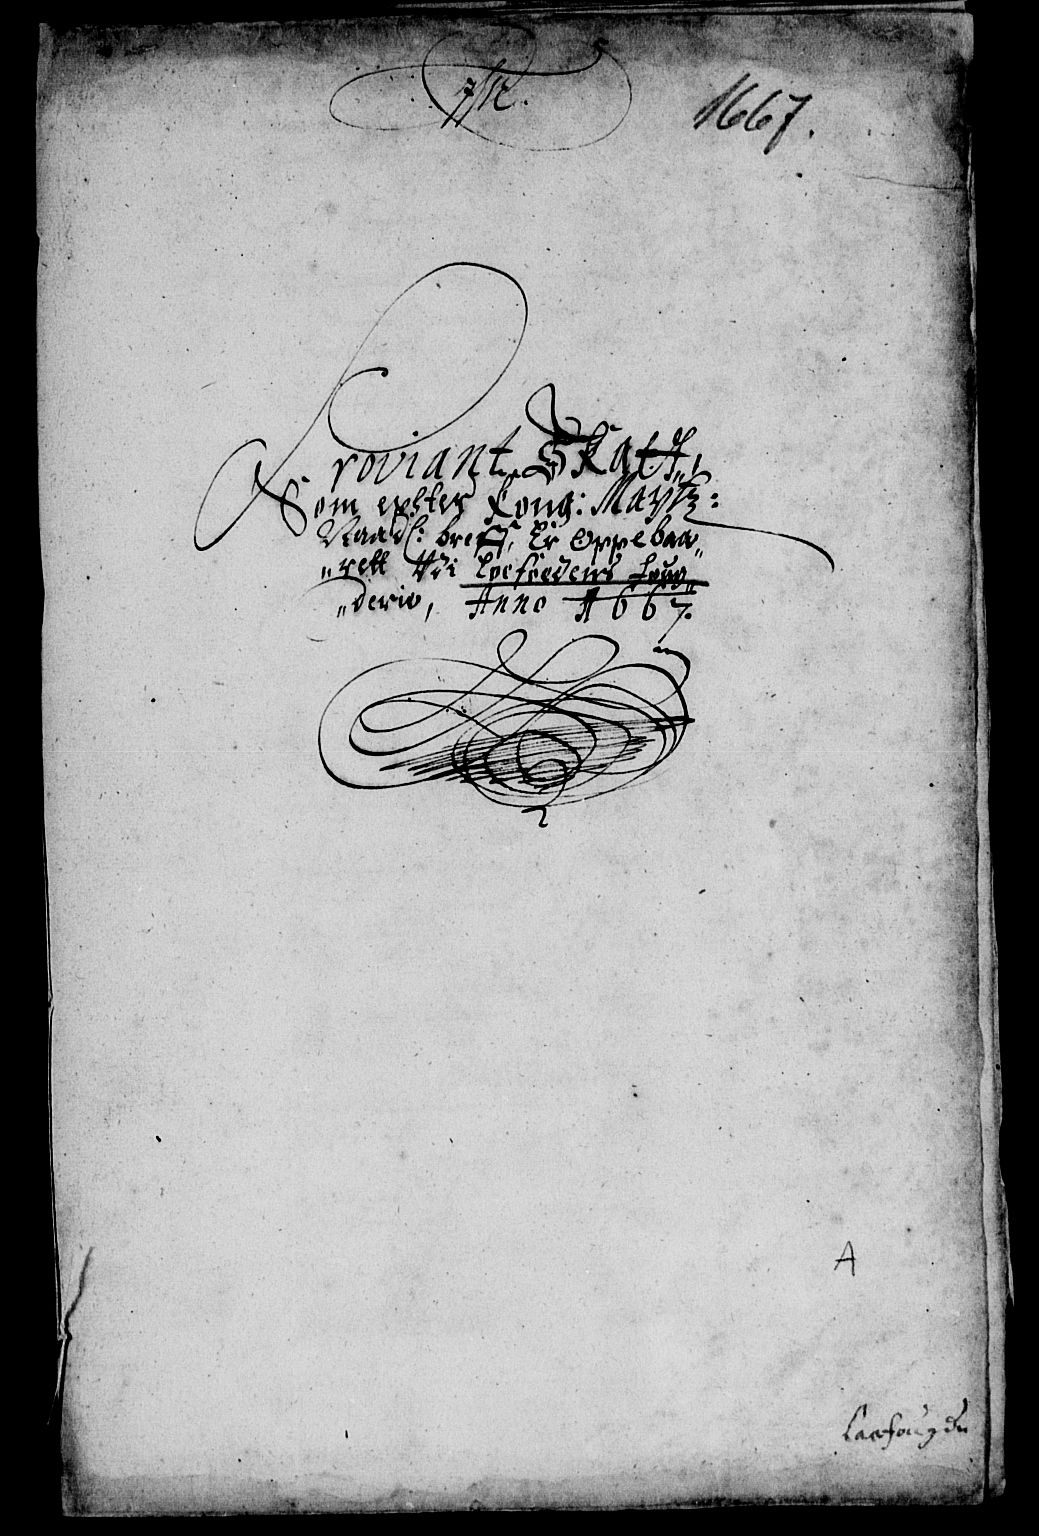 1667.
Proviant Skatt,
Som epther Kong: Maystz:
Naadl: breff, Er Oppebaa„
„rett Udi Loefoedens foug„
„derie, Anno 1667.
A